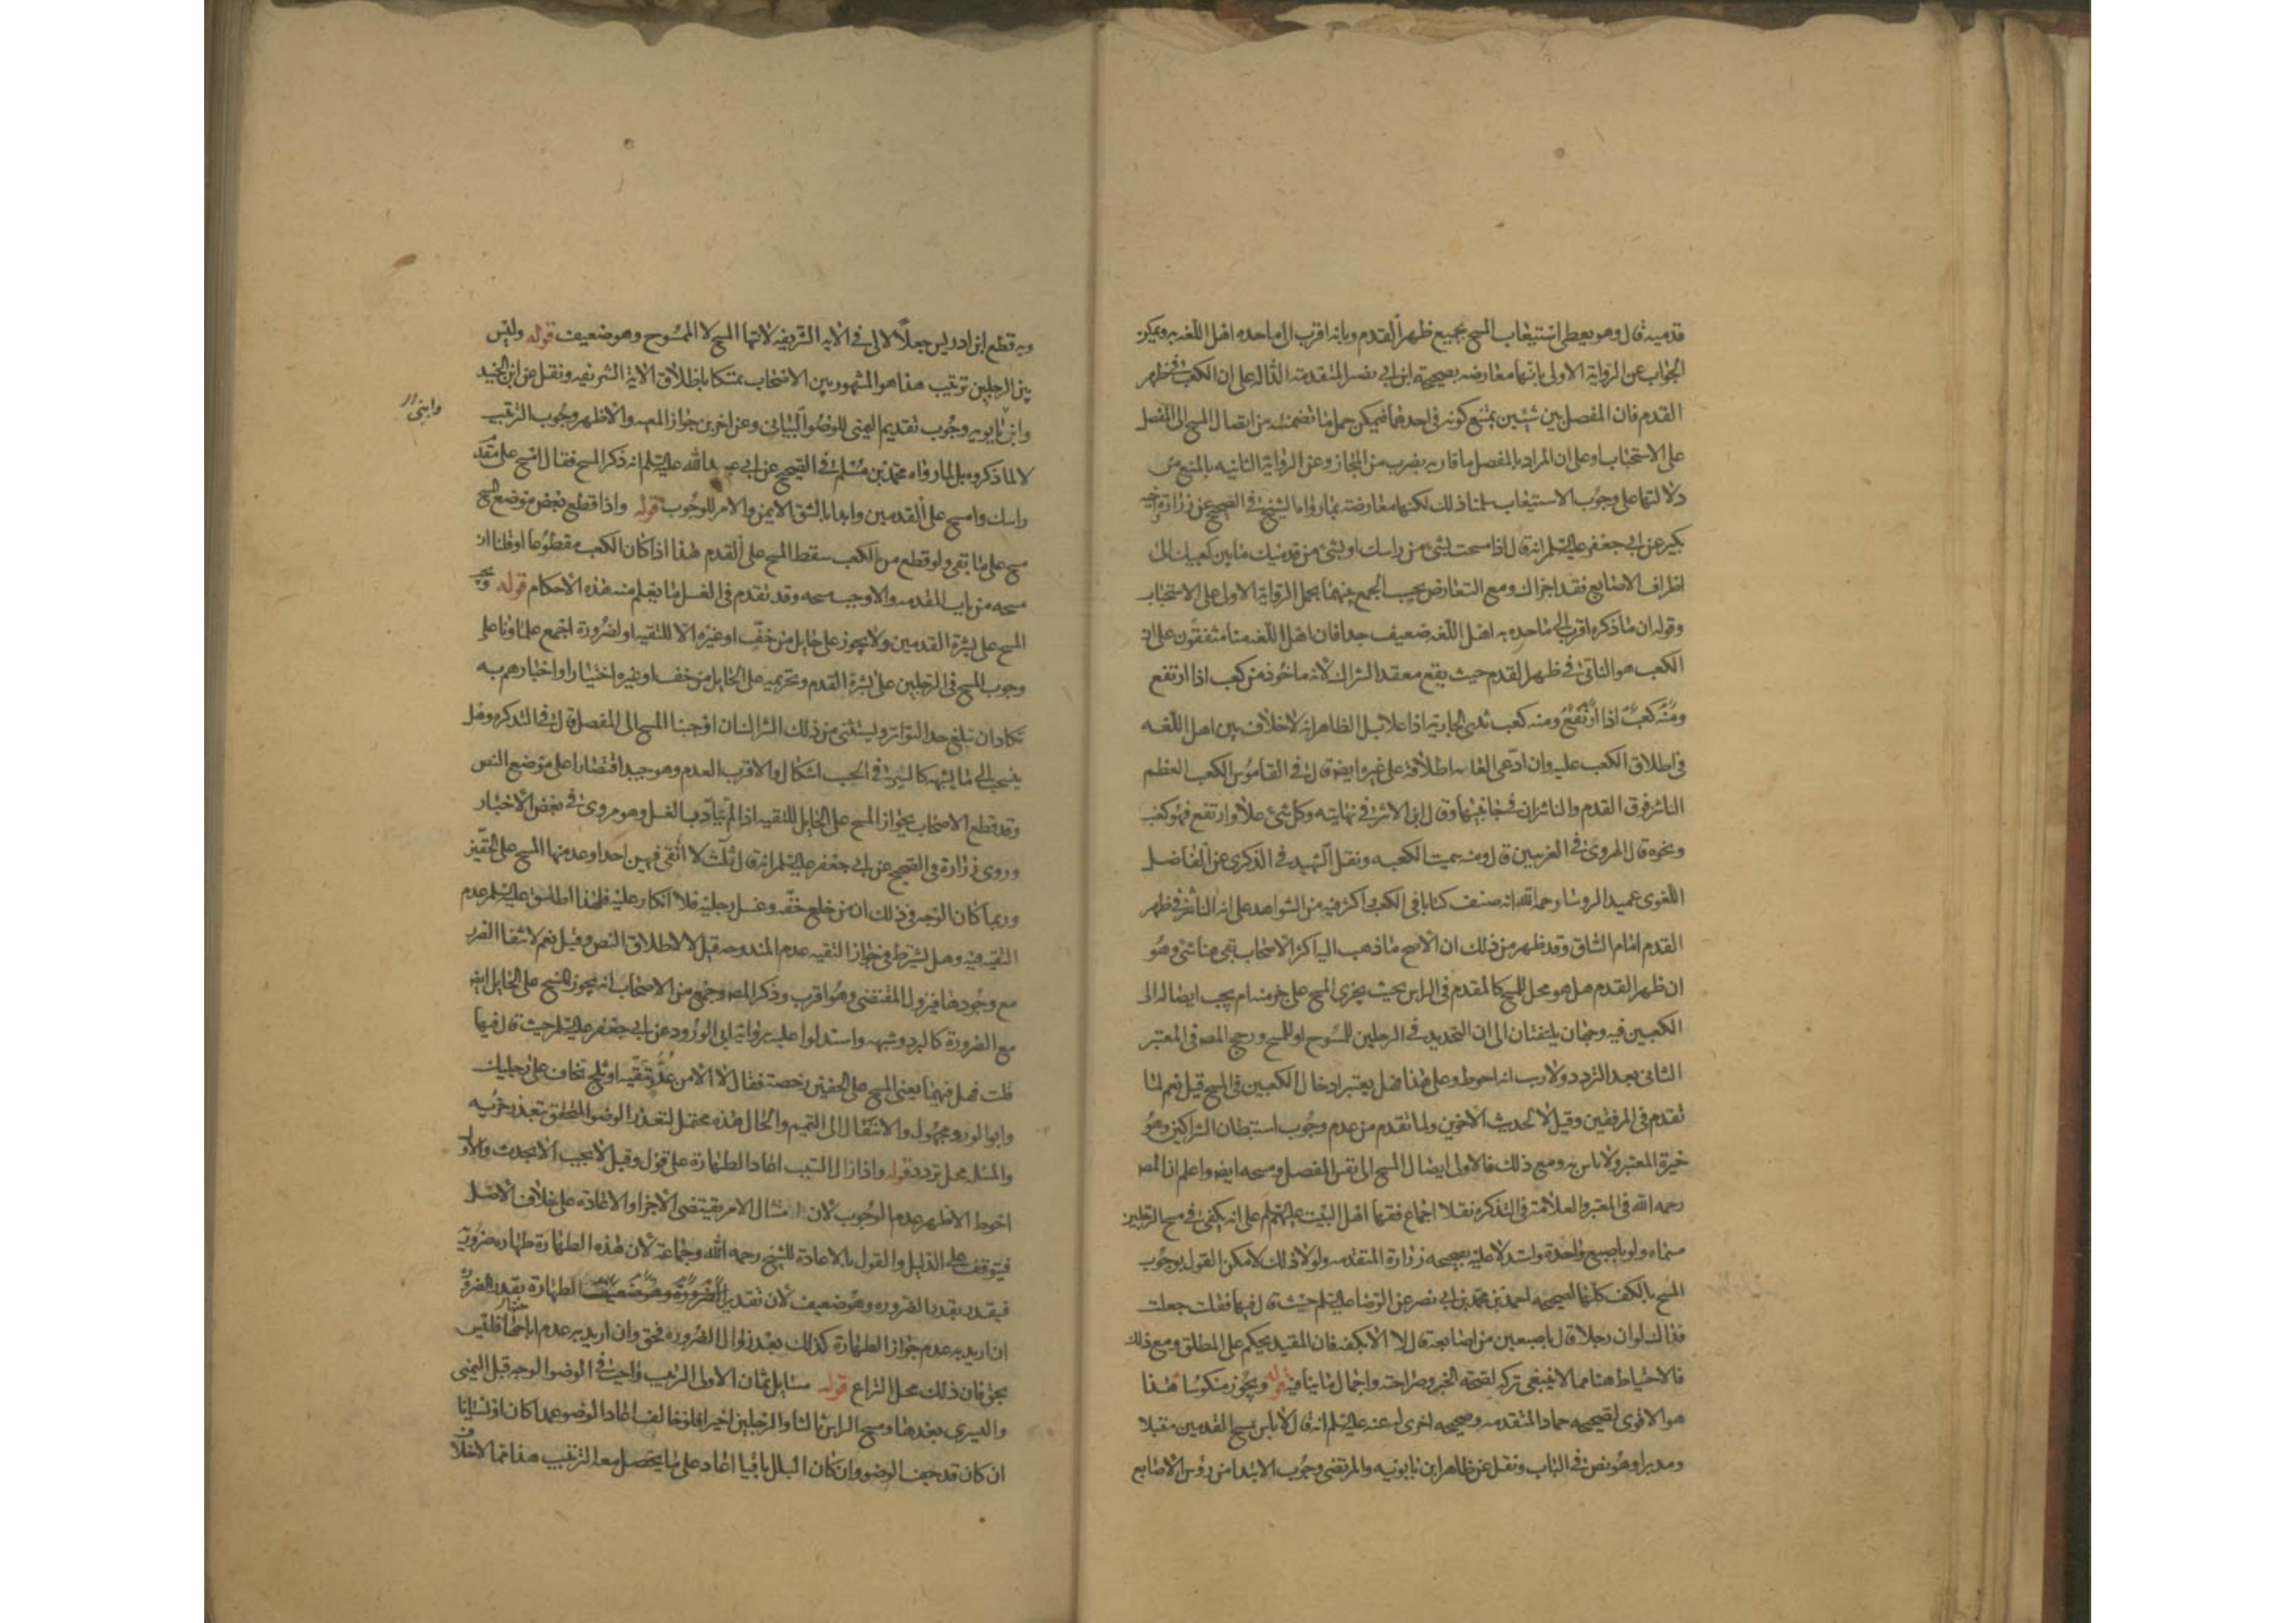 قدميه قال وهو يعطى استيعاب المسح بجميع ظهر القدم وبانه اقرب الى ما حده اهل اللغه به ويمكن
الجواب عن الرواية الاولى بانها معارضه بصحيحة ابن ابى نصر المتقدمه الدالة على ان الكعب فى ظهر
القدم فان المفصل بين شيئين يمتنع كونه فى احدهما فيمكن حمل ما تضمنته من ايصال المسح الى المفصل
على الاستحباب او على ان المراد بالمفصل ما قاربه بضرب من المجاز وعن الرواية الثانيه بالمنع من
دلالتها على وجوب الاستيعاب سلمنا ذلك لكنها معارضة بما رواه الشيخ فى الصحيح عن زرارة واخيه
بكير عن ابى جعفر عليه السلم انه قال اذا مسحت بشئ من راسك او بشئ من قدميك ما بين كعبيك الى
اطراف الاصابع فقد اجزاك ومع التعارض يجب الجمع بينهما بحمل الرواية الاولى على الاستحباب
وقوله ان ما ذكره اقرب الى ما حده به اهل اللغه ضعيف جدا فان اهل اللغه منا متفقون على ان
الكعب هو الناتى فى ظهر القدم حيث يقع معقد الشراك لانه ماخوذ من كعب اذا ارتفع
ومنه كعب اذا ارتفع ومنه كعب ثدى الجارية اذا علا بل الظاهر انه لا خلاف بين اهل اللغه
فى اطلاق الكعب عليه وان ادعى العامه اطلاقه على غيره ايضا قال فى القاموس الكعب العظم
الناشز فوق القدم والناشزان فى جانبيها وقال ابن الاثير فى نهايته وكل شئ علا وارتفع فهو كعب
ونحوه قال الهروى فى الغريبين قال ومنه سميت الكعبه ونقل الشهيد فى الذكرى عن الفاضل
اللغوى عميد الروسا رحمه الله انه صنف كتابا فى الكعب واكثر فيه من الشواهد على انه الناشز فى ظهر
القدم امام الساق وقد ظهر من ذلك ان الاصح ما ذهب اليه اكثر الاصحاب بقى هنا شئ وهو
ان ظهر القدم هل هو محل للمسح كالمقدم فى الراس بحيث يجزى المسح على جزء منه ام يجب ايصاله الى
الكعبين فيه وجهان يلتفتان الى ان التحديد فى الرجلين للمسوح او للمسح ورجح المصه فى المعتبر
الثانى بعد التردد ولا ريب انه احوط وعلى هذا فهل يعتبر ادخال الكعبين فى المسح قيل نعم لما
تقدم فى المرفقين وقيل لا لحديث الاخوين ولما تقدم من عدم وجوب استبطان الشراكين وهو
خيرة المعتبر ولا باس به ومع ذلك فالاولى ايصال المسح الى نفس المفصل ومسحه ايضا واعلم ان المصه
رحمه الله فى المعتبر والعلامة فى التذكره نقلا اجماع فقها اهل البيت عليهم السلم على انه يكفى فى مسح الرجلين
مسماه ولو باصبع واحدة واستدلا عليه بصحيحه زرارة المتقدمه ولولا ذلك لامكن القول بوجوب
المسح بالكف كلها لصحيحه احمد بن محمد بن ابى نصر عن الرضا عليه السلم حيث قال فيها فقلت جعلت
فداك لو ان رجلا قال باصبعين من اصابعه قال لا الا بكفه فان المقيد يحكم على المطلق ومع ذلك
فالاحتياط هنا مما لا ينبغى تركه لصحة الخبر وصراحته واجمال ما ينافيه قوله ويجوز منكوسا هذا
هو الاقوى لصحيحه حماد المتقدمه وصحيحه اخرى له عنه عليه السلم انه قال لا باس بمسح القدمين مقبلا
ومدبرا وهو نص فى الباب ونقل عن ظاهر ابن بابويه والمرتضى وجوب الابتدا من رؤس الاصابع
وبه قطع ابن ادريس جعلا لالى فى الايه الشريفه لانتها المسح لا الممسوح وهو ضعيف قوله وليس
بين الرجلين ترتيب هذا هو المشهور بين الاصحاب تمسكا باطلاق الاية الشريفه ونقل عن ابن الجنيد
وابن بابويه وجوب تقديم اليمنى للوضوء البيانى وعن اخرين جواز المعيه والاظهر وجوب الترتيب
وابنى
لا لما ذكروه بل لما رواه محمد بن مسلم فى الصحيح عن ابى عبد الله عليه السلم انه ذكر المسح فقال امسح على مقدم
راسك وامسح على القدمين وابدا بالشق الايمن والامر للوجوب قوله واذا قطع بعض موضع المسح
مسح على ما بقى ولو قطع من الكعب سقط المسح على القدم هذا اذا كان الكعب مقطوعا او قلنا ان
مسحه من باب المقدمه والا وجب مسحه وقد تقدم فى الغسل ما يعلم منه هذه الاحكام قوله ويجب
المسح على بشرة القدمين ولا يجوز على حايل من خف او غيره الا للتقيه او لضرورة اجمع علماونا على
وجوب المسح فى الرجلين على بشرة القدم وتحريمه على الحايل من خف او غيره اختيارا واخبارهم به
تكاد ان تبلغ حد التواتر ويستثنى من ذلك الشراك ان اوجبنا المسح الى المفصل قال فى التذكره وهل
ينسحب الى ما يشبهه كالسير فى الخشب اشكال والاقرب العدم وهو جيد اقتصارا على موضع النص
وقد قطع الاصحاب بجواز المسح على الحايل للتقيه اذا لم يتأد بالغسل وهو مروى فى بعض الاخبار
وروى زرارة فى الصحيح عن ابى جعفر عليه السلم انه قال ثلاث لا اتقى فيهن احدا وعد منها المسح على الخفين
وربما كان الوجه فى ذلك ان من خلع خفه وغسل رجليه فلا انكار عليه فلهذا اطلق عليه السلم عدم
التقيه فيه وهل يشترط فى جواز التقيه عدم المندوحه قيل لا لاطلاق النص وقيل نعم لانتفا الضرر
مع وجودها فيزول المقتضى وهو اقرب وذكر المصه وجمع من الاصحاب انه يجوز المسح على الحايل ايضا
مع الضرورة كالبرد وشبهه واستدلوا عليه برواية ابى الورد عن ابى جعفر عليه السلم حيث قال فيها
قلت فهل فيهما يعنى المسح على الخفين رخصة فقال لا الا من عدو تتقيه او ثلج تخاف على رجليك
وابو الورد مجهول والانتقال الى التيمم والحال هذه محتمل لتعذر الوضوء المتحقق بتعذر جزءيه
والمسئله محل تردد قوله واذا زال السبب اعاد الطهارة على قول وقيل لا يجب الا لحدث والاول
احوط الاظهر عدم الوجوب لان امتثال الامر يقتضى الاجزا والاعاده على خلاف الاصل
فيتوقف على الدليل والقول بالاعادة للشيخ رحمه الله وجماعة لان هذه الطهارة طهاره ضرورية
فيقدر بقدر الضروره وهو ضعيف لان تقدير الضرورة وهو ضعيف الطهارة بقدر الضرورة
ان اريد به عدم جواز الطهارة كذلك بعد زوال الضروره فحق وان اريد به عدم اباحتها فليس
بحق فان ذلك محل النزاع قوله مسايل ثمان الاولى الترتيب واجب فى الوضوء الوجه قبل اليمنى
واليسرى بعدها ومسح الراس ثالثا والرجلين اخيرا فلو خالف اعاد الوضوء عمدا كان او نسيانا
ان كان قد جف الوضوء وان كان البلل باقيا اعاد على ما يحصل معه الترتيب هذا مما لا خلاف